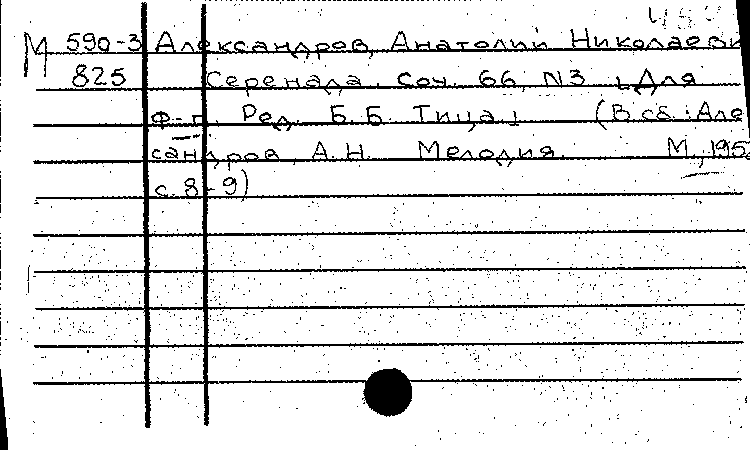 М 590-3 Александров, Анатолий Николаеви
825 Серенада. Соч. 66, N3 [Для
ф-п. Ред. Б.Б. Тица] (В сб.: Але
сандров, А.Н. Мелодия. М., 195
с. 8-9)